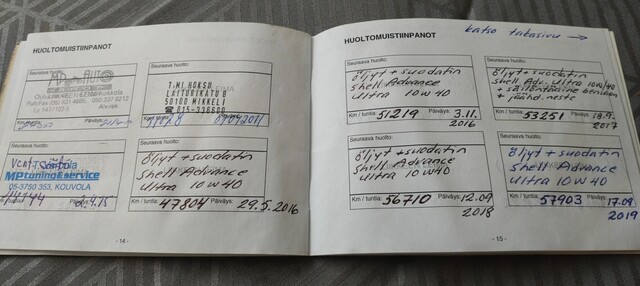 HUOLTOMUISTIINPANOT
Seuraava huolto:
AUTO
Puh/Fax
Km / tuntia: Päiväys:
Seuraava huolto:
T:MI HOKSU
LAITURIKATU 8
50100 MIKKELI
☎015-336600
Km / tuntia: Päiväys:
Seuraava huolto:
MPtuning&service
05-3750 353, KOUVOLA
Km / tuntia: Päiväys:
Seuraava huolto:
Öljyt + suodatin
Shell Advance
Ultra 10W40
Km / tuntia: 47804 Päiväys: 29.5.2016
- 14 -
katso takasivu →
HUOLTOMUISTIINPANOT
Seuraava huolto:
Öljyt + suodatin
Shell Advance
Ultra 10W40
Km / tuntia: 51219 Päiväys: 3.11.
2016
Seuraava huolto:
Öljyt + suodatin
Shell Adv. Ultra 10W40
+ jäähd. neste
Km / tuntia: 53251 Päiväys:
2017
Seuraava huolto:
Öljyt + suodatin
Shell Advance
Ultra 10W40
Km / tuntia: 56710 Päiväys: 12.09
2018
Seuraava huolto:
Öljyt + suodatin
Shell Advance
Ultra 10W40
Km / tuntia: 57903 Päiväys: 17.09
2019
- 15 -